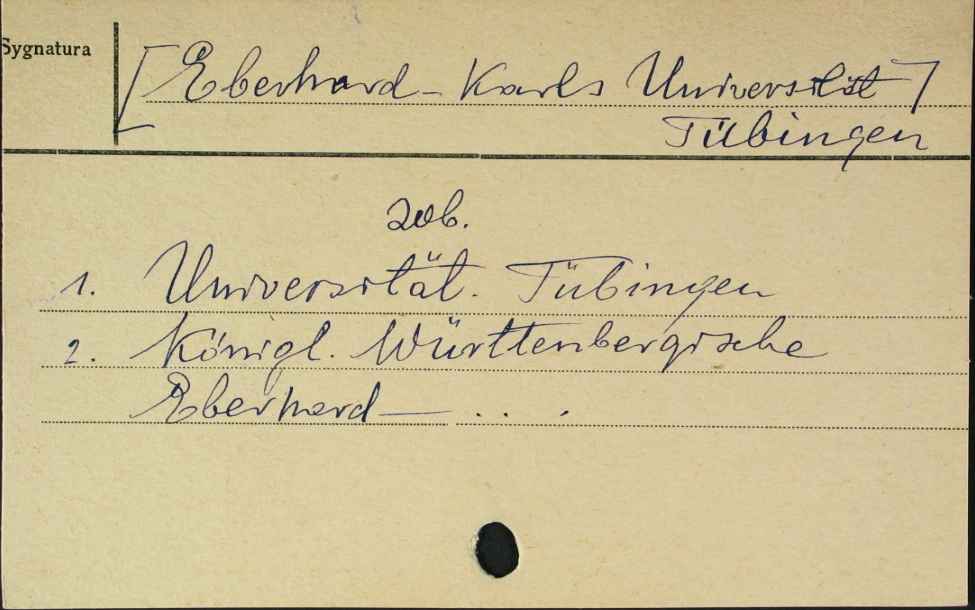 Sygnatura
[Eberhard-Karls Universität]
Tübingen
zob.
1. Universität. Tübingen
2. Königl. Württenbergische
Eberhard — . . .